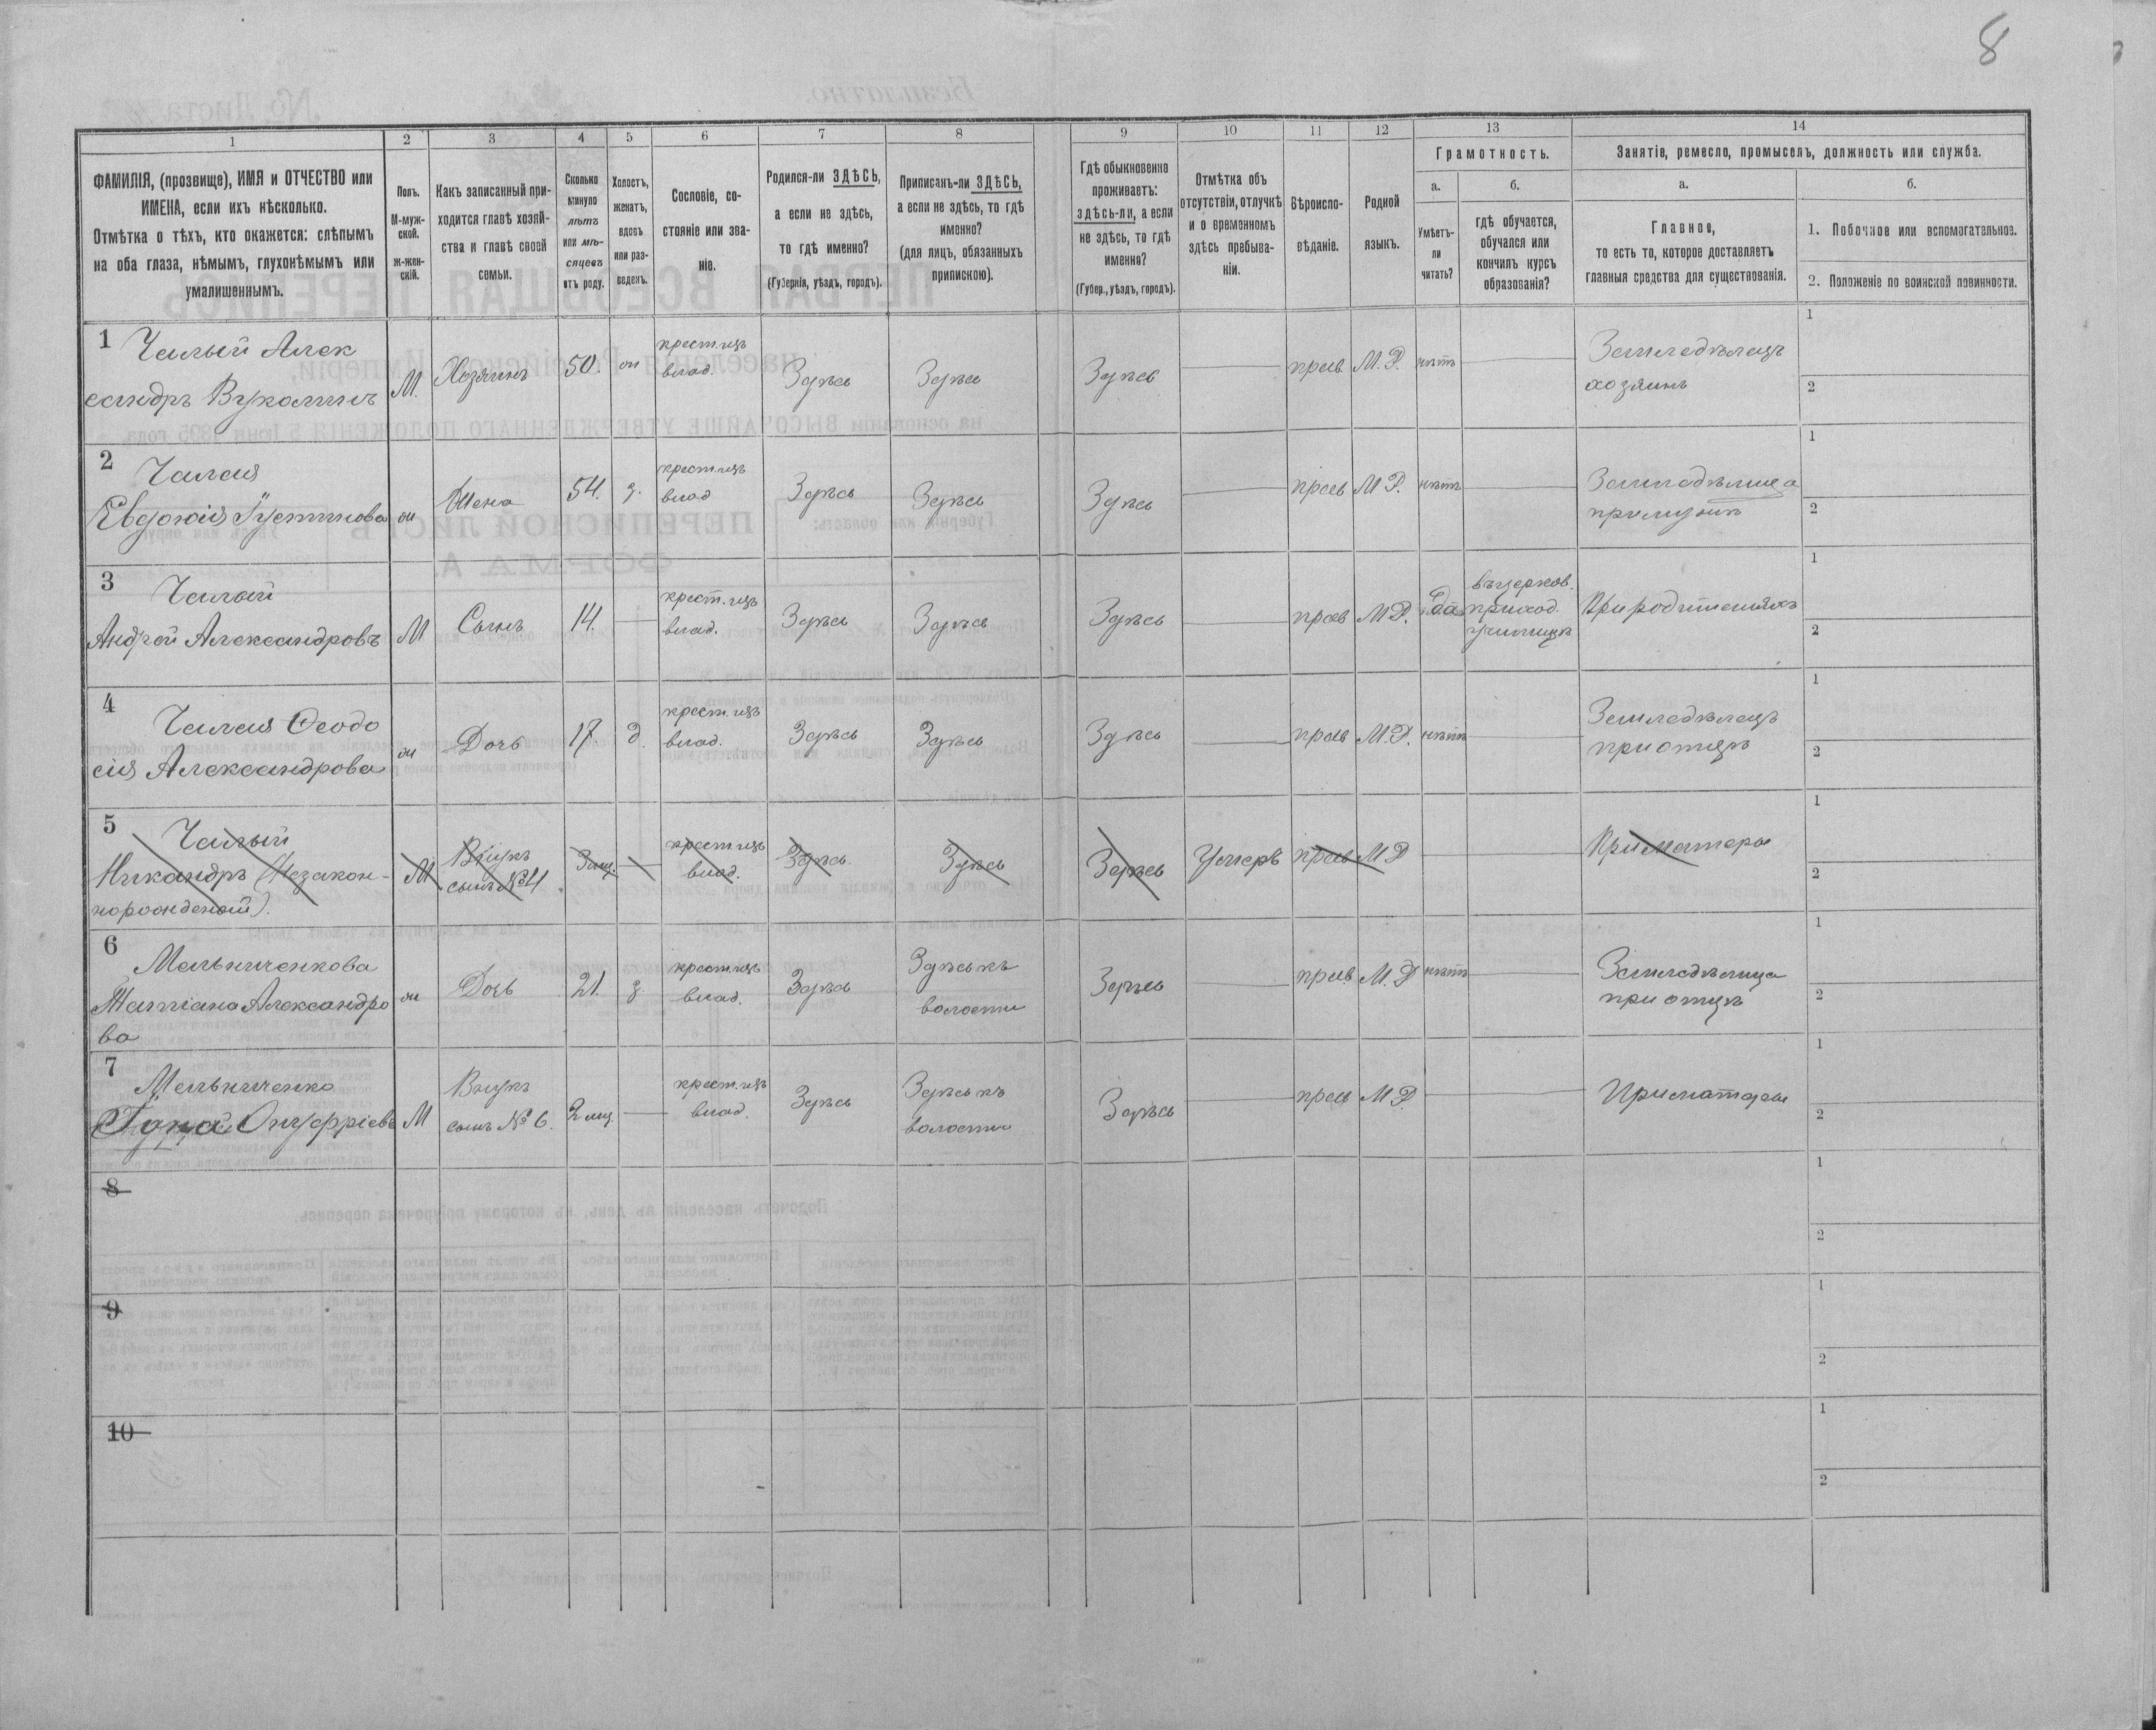 8
1
2
3
4
5
6
7
8
9
10
11
12
13
14
ФАМИЛІЯ, (прозвище), ИМЯ и ОТЧЕСТВО или
ИМЕНА, если ихъ нѣсколько.
Отмѣтка о тѣхъ, кто окажется: слѣпымъ
на оба глаза, нѣмымъ, глухонѣмымъ или
умалишеннымъ.
Полъ.
М-муж-
ской.
Ж-жен-
скій.
Какъ записанный при-
ходится главѣ хозяй-
ства и главѣ своей
семьи.
Сколько
минуло
лѣтъ
или мѣ-
сяцевъ
отъ роду.
Холостъ,
женатъ,
вдовъ
или раз-
веденъ.
Сословіе, со-
стояніе или зва-
ніе.
Родился-ли ЗДѢСЬ,
а если не здѣсь,
то гдѣ именно?
(Губернія, уѣздъ, городъ).
Приписанъ-ли ЗДѢСЬ,
а если не здѣсь, то гдѣ
именно?
(для лицъ, обязанныхъ
припискою).
Гдѣ обыкновенно
проживаетъ:
здѣсь-ли, а если
не здѣсь, то гдѣ
именно?
(Губер., уѣздъ, городъ).
Отмѣтка объ
отсутствіи, отлучкѣ
и о временномъ
здѣсь пребыва-
ніи.
Вѣроиспо-
вѣданіе.
Родной
языкъ.
Грамотность.
а.
Умѣетъ-
ли
читать?
б.
гдѣ обучается,
обучался или
кончилъ курсъ
образованія?
Занятіе, ремесло, промыселъ, должность или служба.
а.
Главное,
то есть то, которое доставляетъ
главныя средства для существованія.
б.
1. Побочное или вспомогательное.
2. Положеніе по воинской повинности.
1 Чалый Алек
сандръ Вуколинъ
М.
Хозяинъ
50.
ж
крест. изъ
влад.
Здѣсь
Здѣсь
Здѣсь
прав.
М.Р.
нѣтъ
Земледѣлецъ
хозяинъ
1
2
2 Чалая
Евдокія Іустинова
ж
Жена
54.
з.
крест. изъ
влад
Здѣсь
Здѣсь
Здѣсь
прав
М.Р.
нѣтъ
Земледѣлица
при мужѣ
1
2
3 Чалый
Андрей Александровъ
М
Сынъ
14.
крест. изъ
влад.
Здѣсь
Здѣсь
Здѣсь
прав
М.Р.
да
въ церков.
приход.
училищѣ
При родителяхъ
1
2
4 Чалая Ѳеодо
сія Александрова
ж
Дочь
17.
д.
крест. изъ
влад.
Здѣсь
Здѣсь
Здѣсь
прав
М.Р.
нѣтъ
Земледѣлецъ
при отцѣ
1
2
5 Чалый
Никандръ (Незакон-
норожденый).
М
Внукъ
сынъ №4
3 мц.
крест. изъ
влад.
Здѣсь
Здѣсь
Здѣсь
Умеръ
прав
М Р
При матери
1
2
6 Мельниченкова
Татіана Александро
ва
ж
Дочь
21.
з.
крест. изъ
влад.
Здѣсь
Здѣсь къ
волости
Здѣсь
прав
М.Р
нѣтъ
Земледѣлица
при отцѣ
1
2
7 Мельниченко
Іона Онуфріевъ
М
Внукъ
сынъ № 6.
2 мц.
крест. изъ
влад.
Здѣсь
Здѣсь къ
волости
Здѣсь
прав
М Р
При матери
1
2
8
1
2
9
1
2
10
1
2